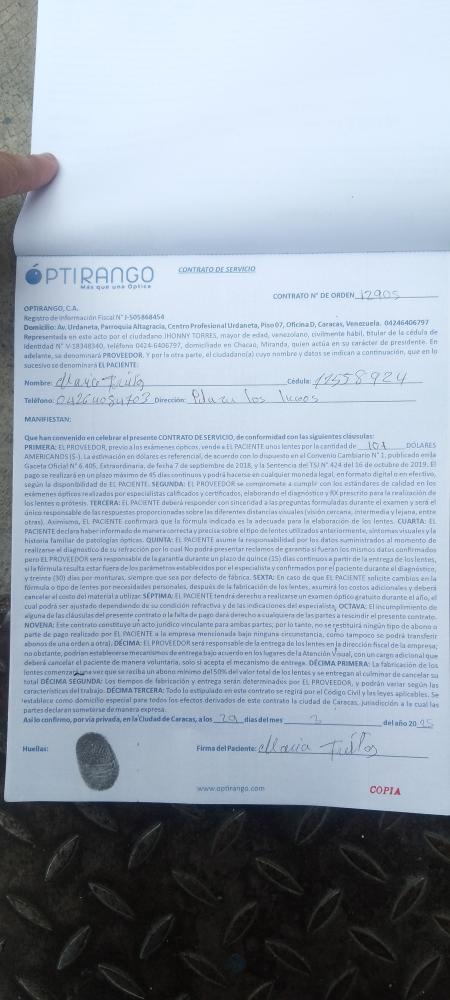 ÓPTIRANGO
Más que una Óptica
CONTRATO DE SERVICIO
CONTRATO N° DE ORDEN 12905
OPTIRANGO, C.A.
Registro de Información Fiscal N° J-505868454
Domicilio: Av. Urdaneta, Parroquia Altagracia, Centro Profesional Urdaneta, Piso 07, Oficina D, Caracas, Venezuela. 04246406797
Representada en este acto por el ciudadano JHONNY TORRES, mayor de edad, venezolano, civilmente hábil, titular de la cédula de
identidad N° V-18348340, teléfono 0424-6406797, domiciliado en Chacao, Miranda, quien actúa en su carácter de presidente. En
adelante, se denominará PROVEEDOR. Y por la otra parte, el ciudadano(a) cuyo nombre y datos se indican a continuación, que en lo
sucesivo se denominará EL PACIENTE:
Nombre: Maria Cédula: 12558924
Teléfono: Dirección: los
MANIFIESTAN:
Que han convenido en celebrar el presente CONTRATO DE SERVICIO, de conformidad con las siguientes cláusulas:
PRIMERA: EL PROVEEDOR, previo a los exámenes ópticos, vende a EL PACIENTE unos lentes por la cantidad de 101 DÓLARES
AMERICANOS ($-). La estimación en dólares es referencial, de acuerdo con lo dispuesto en el Convenio Cambiario N° 1, publicado en la
Gaceta Oficial N° 6.405, Extraordinaria, de fecha 7 de septiembre de 2018, y la Sentencia del TSJ N° 424 del 16 de octubre de 2019. El
pago se realizará en un plazo máximo de 45 días continuos y podrá hacerse en cualquier moneda legal, en formato digital o en efectivo,
según la disponibilidad de EL PACIENTE. SEGUNDA: EL PROVEEDOR se compromete a cumplir con los estándares de calidad en los
exámenes ópticos realizados por especialistas calificados y certificados, elaborando el diagnóstico y RX prescrito para la realización de
los lentes o prótesis. TERCERA: EL PACIENTE deberá responder con sinceridad a las preguntas formuladas durante el examen y será el
único responsable de las respuestas proporcionadas sobre las diferentes distancias visuales (visión cercana, intermedia y lejana, entre
otras). Asimismo, EL PACIENTE confirmará que la fórmula indicada es la adecuada para la elaboración de los lentes. CUARTA: EL
PACIENTE declara haber informado de manera correcta y precisa sobre el tipo de lentes utilizados anteriormente, síntomas visuales y la
historia familiar de patologías ópticas. QUINTA: EL PACIENTE asume la responsabilidad por los datos suministrados al momento de
realizarse el diagnostico de su refracción por lo cual No podrá presentar reclamos de garantía si fueran los mismos datos confirmados
pero EL PROVEEDOR será responsable de la garantía durante un plazo de quince (15) días continuos a partir de la entrega de los lentes,
si la fórmula resulta estar fuera de los parámetros establecidos por el especialista y confirmados por el paciente durante el diagnóstico,
y treinta (30) días por monturas, siempre que sea por defecto de fábrica. SEXTA: En caso de que EL PACIENTE solicite cambios en la
fórmula o tipo de lentes por necesidades personales, después de la fabricación de los lentes, asumirá los costos adicionales y deberá
cancelar el costo del material a utilizar. SÉPTIMA: EL PACIENTE tendrá derecho a realizarse un examen óptico gratuito durante el año, el
cual podrá ser ajustado dependiendo de su condición refractiva y de las indicaciones del especialista, OCTAVA: El incumplimiento de
alguna de las cláusulas del presente contrato o la falta de pago dará derecho a cualquiera de las partes a rescindir el presente contrato.
NOVENA: Este contrato constituye un acto jurídico vinculante para ambas partes; por lo tanto, no se restituirá ningún tipo de abono o
parte de pago realizado por EL PACIENTE a la empresa mencionada bajo ninguna circunstancia, como tampoco se podrá transferir
abonos de una orden a otra). DÉCIMA: EL PROVEEDOR será responsable de la entrega de los lentes en la dirección fiscal de la empresa;
no obstante, podrían establecerse mecanismos de entrega bajo acuerdo en los lugares de la Atención Visual, con un cargo adicional que
deberá cancelar el paciente de manera voluntaria, solo si acepta el mecanismo de entrega. DÉCIMA PRIMERA: La fabricación de los
lentes comenzará una vez que se reciba un abono mínimo del 50% del valor total de los lentes y se entregan al culminar de cancelar su
total DÉCIMA SEGUNDA: Los tiempos de fabricación y entrega serán determinados por EL PROVEEDOR, y podrán variar según las
características del trabajo. DÉCIMA TERCERA: Todo lo estipulado en este contrato se regirá por el Código Civil y las leyes aplicables. Se
establece como domicilio especial para todos los efectos derivados de este contrato la ciudad de Caracas, jurisdicción a la cual las
partes declaran someterse de manera expresa.
Así lo confirmo, por vía privada, en la Ciudad de Caracas, a los 29 días del mes del año 2025
Huellas: Firma del Paciente: Maria
www.optirango.com
COPIA